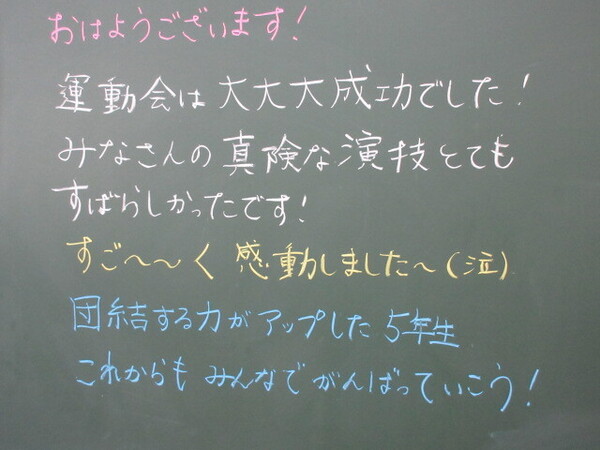 おはようございます!
運動会は大大大成功でした!
みなさんの真険な演技とても
すばらしかったです!
すご〜〜く感動しました〜(泣)
団結する力がアップした5年生
これからもみんなでがんばっていこう!